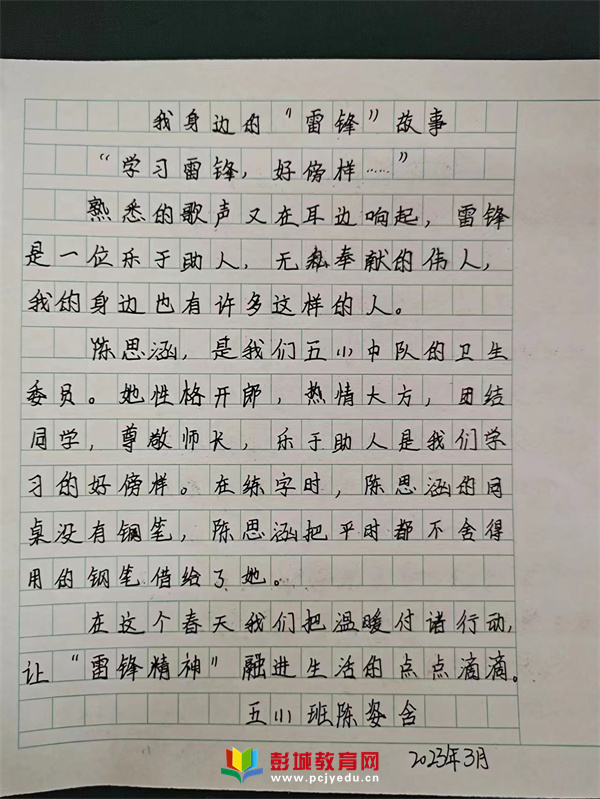 我身边的“雷锋”故事
“学习雷锋，好傍样……”
熟悉的歌声又在耳边响起，雷锋
是一位乐于助人，无私奉献的伟人，
我的身边也有许多这样的人。
陈思涵，是我们五(1)中队的卫生
委员。她性格开郎，热情大方，团结
同学，尊敬师长，乐于助人是我们学
习的好傍样。在练字时，陈思涵的同
桌没有钢笔，陈思涵把平时都不舍得
用的钢笔借给了她。
在这个春天我们把温暖付诸行动，
让“雷锋精神”融进生活的点点滴滴。
五(1)班陈姿含
2023年3月
彭城教育网
www.pcjyedu.cn